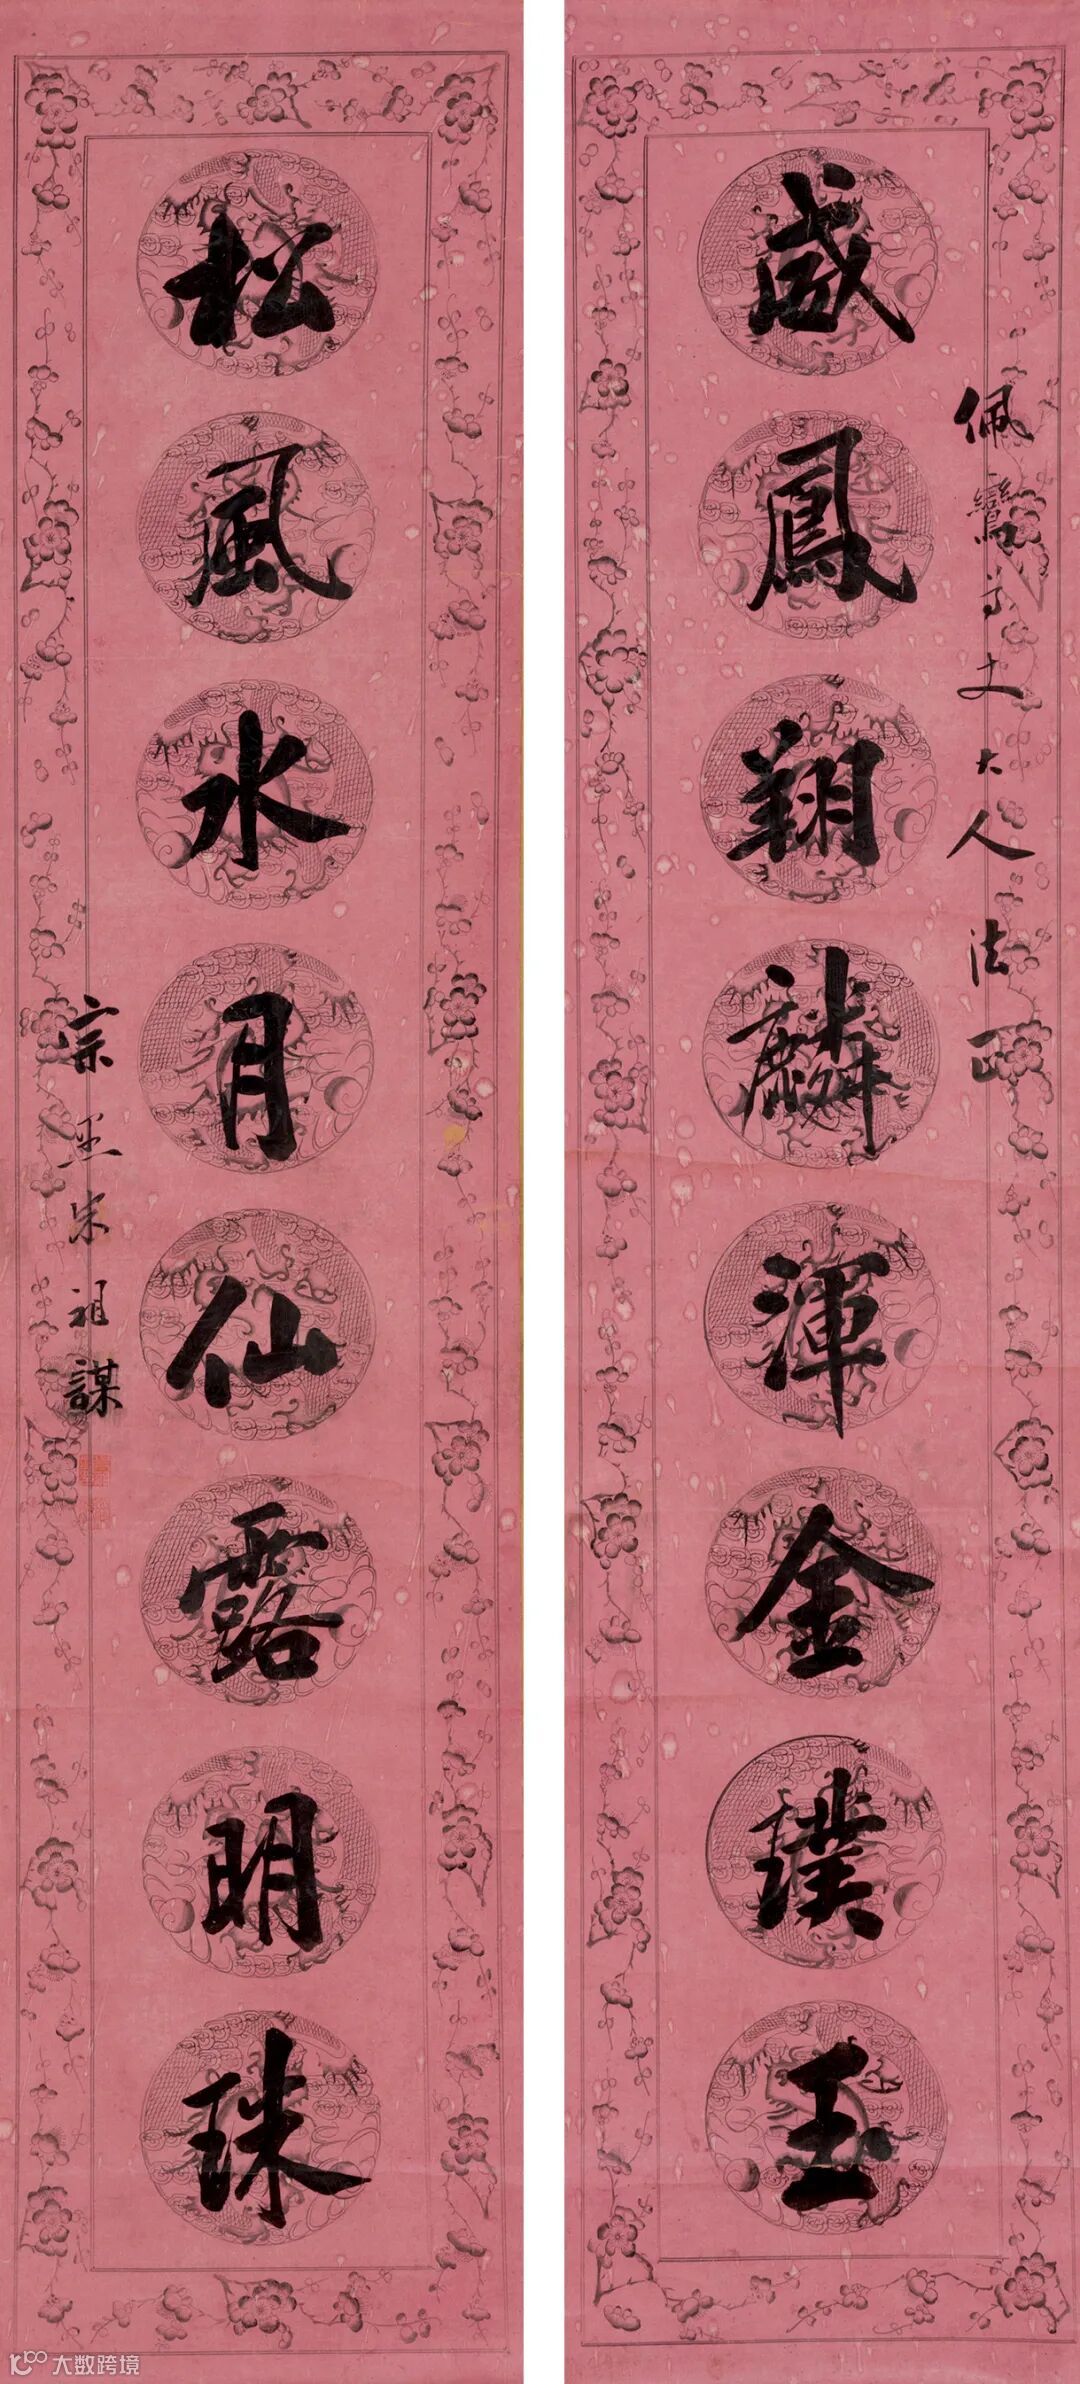 威鳳翔麟渾金璞玉
佩鸞尊丈大人法正
松風水月仙露明珠
宗朱祖謀
大数跨境